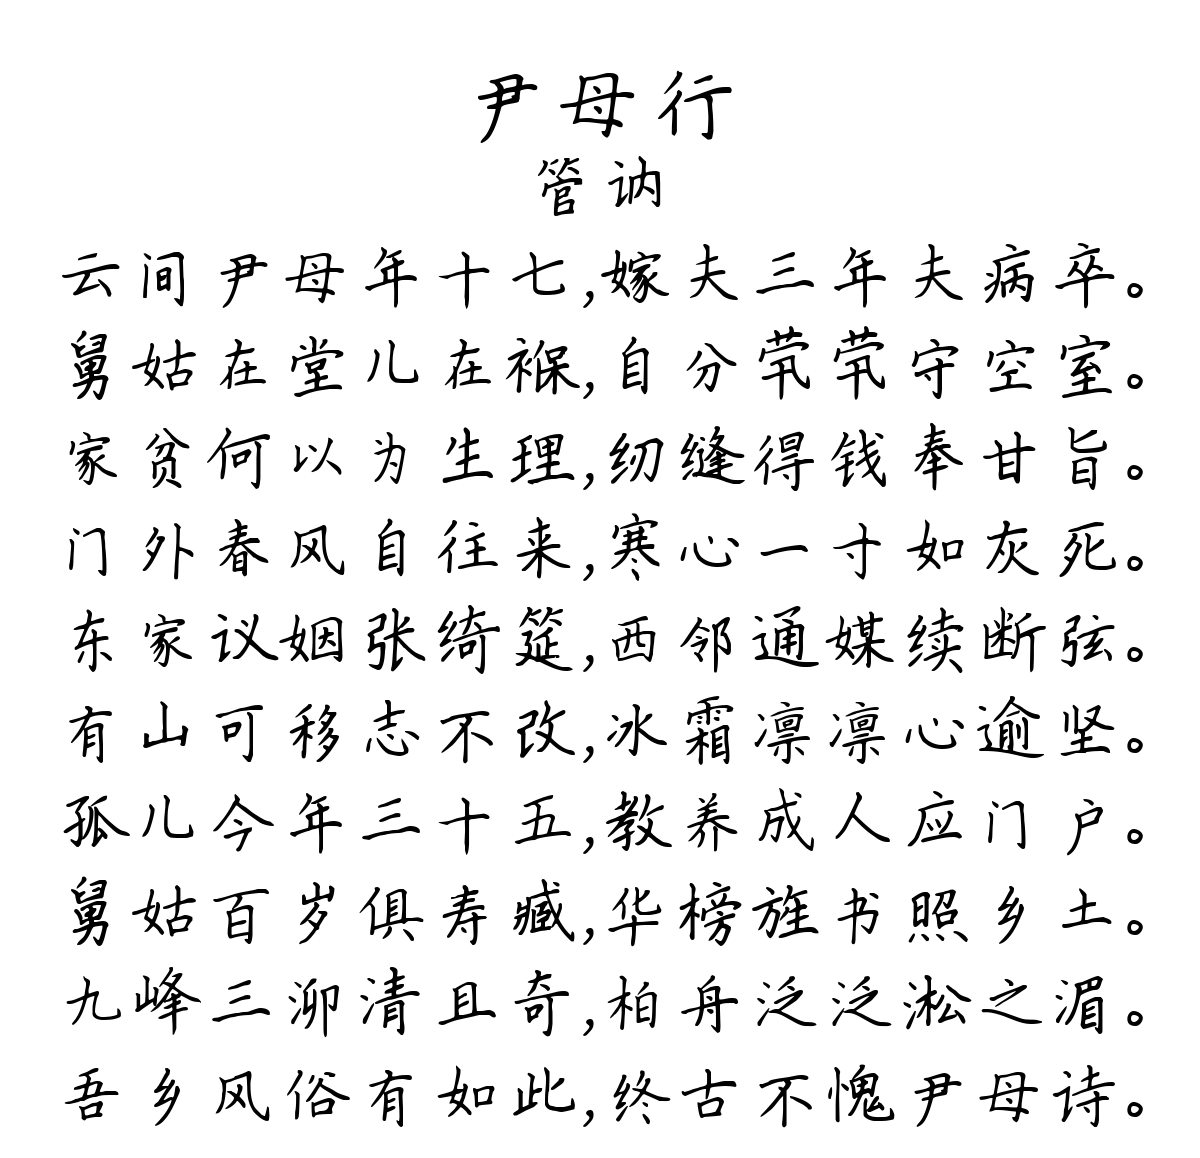 尹母行
管讷
云间尹母年十七,嫁夫三年夫病卒。
舅姑在堂儿在褓,自分茕茕守空室。
家贫何以为生理,纫缝得钱奉甘旨。
门外春风自往来,寒心一寸如灰死。
东家议姻张绮筵,西邻通媒续断弦。
有山可移志不改,冰霜凛凛心逾坚。
孤儿今年三十五,教养成人应门户。
舅姑百岁俱寿臧,华榜旌书照乡土。
九峰三泖清且奇,柏舟泛泛淞之湄。
吾乡风俗有如此,终古不愧尹母诗。